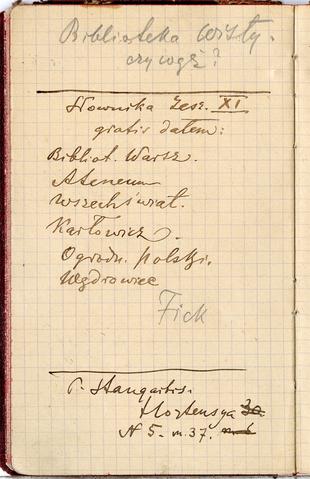 Biblioteka Wisły.
czy wąż?
Słownika Zesz. XI
gratis dałem:
Bibliot. Warsz.
Ateneum
Wszechświat.
Karłowicz.
Ogrodn. polski.
Wędrowiec
Fick
P. Stangartis.
Hortensya 30
N 5. m. 37.